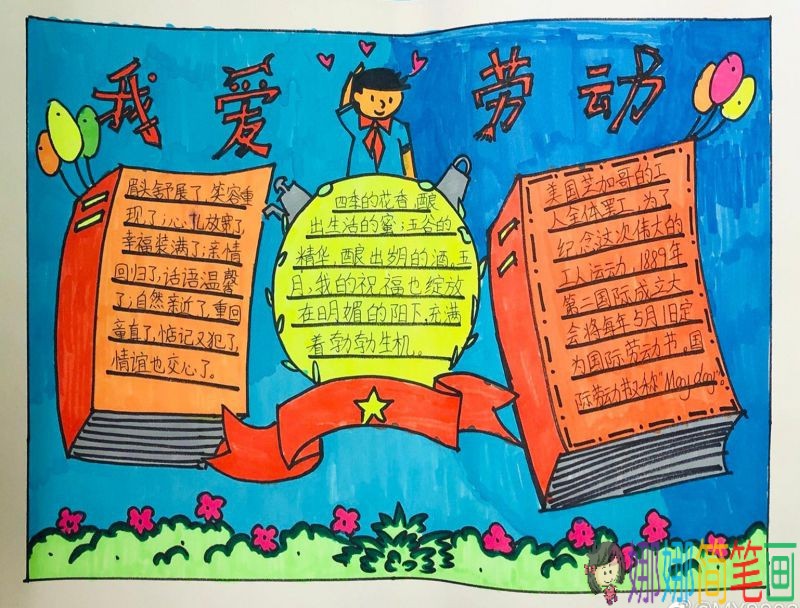 我爱劳动
眉头舒展了,笑容重
现了;心扎放宽了
幸福装满了;亲情
回归了,话语温馨
了;自然亲近了,重回
童真了,惦记又犯了,
情谊也交心了。
四季的花香,酿
出生活的蜜;五谷的
精华,酿出岁月的酒,五
月,我的祝福也绽放
在日月媚的阳下,充满
着勃勃生机。
美国芝加哥的工
人全体罢工,为了
纪念这次伟大的
工人运动,1889年
第二国际成立大
会将每年5月1日定
为国际劳动节。国
际劳动节又称"May day"。
娜娜简笔画